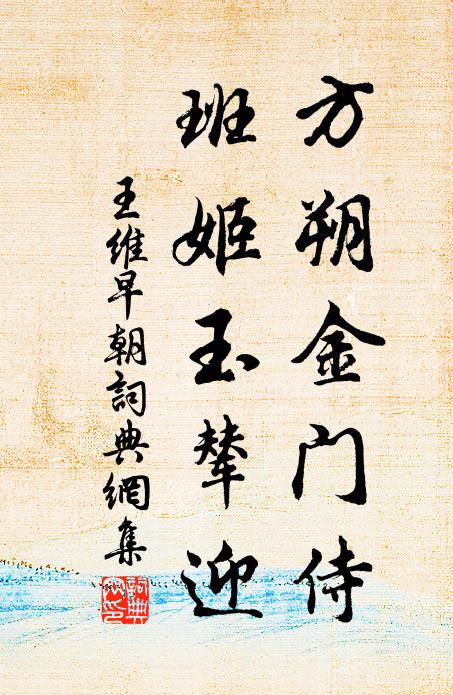 方朔金门侍
班姬玉辇迎
王维早朝詞典網集
詞典